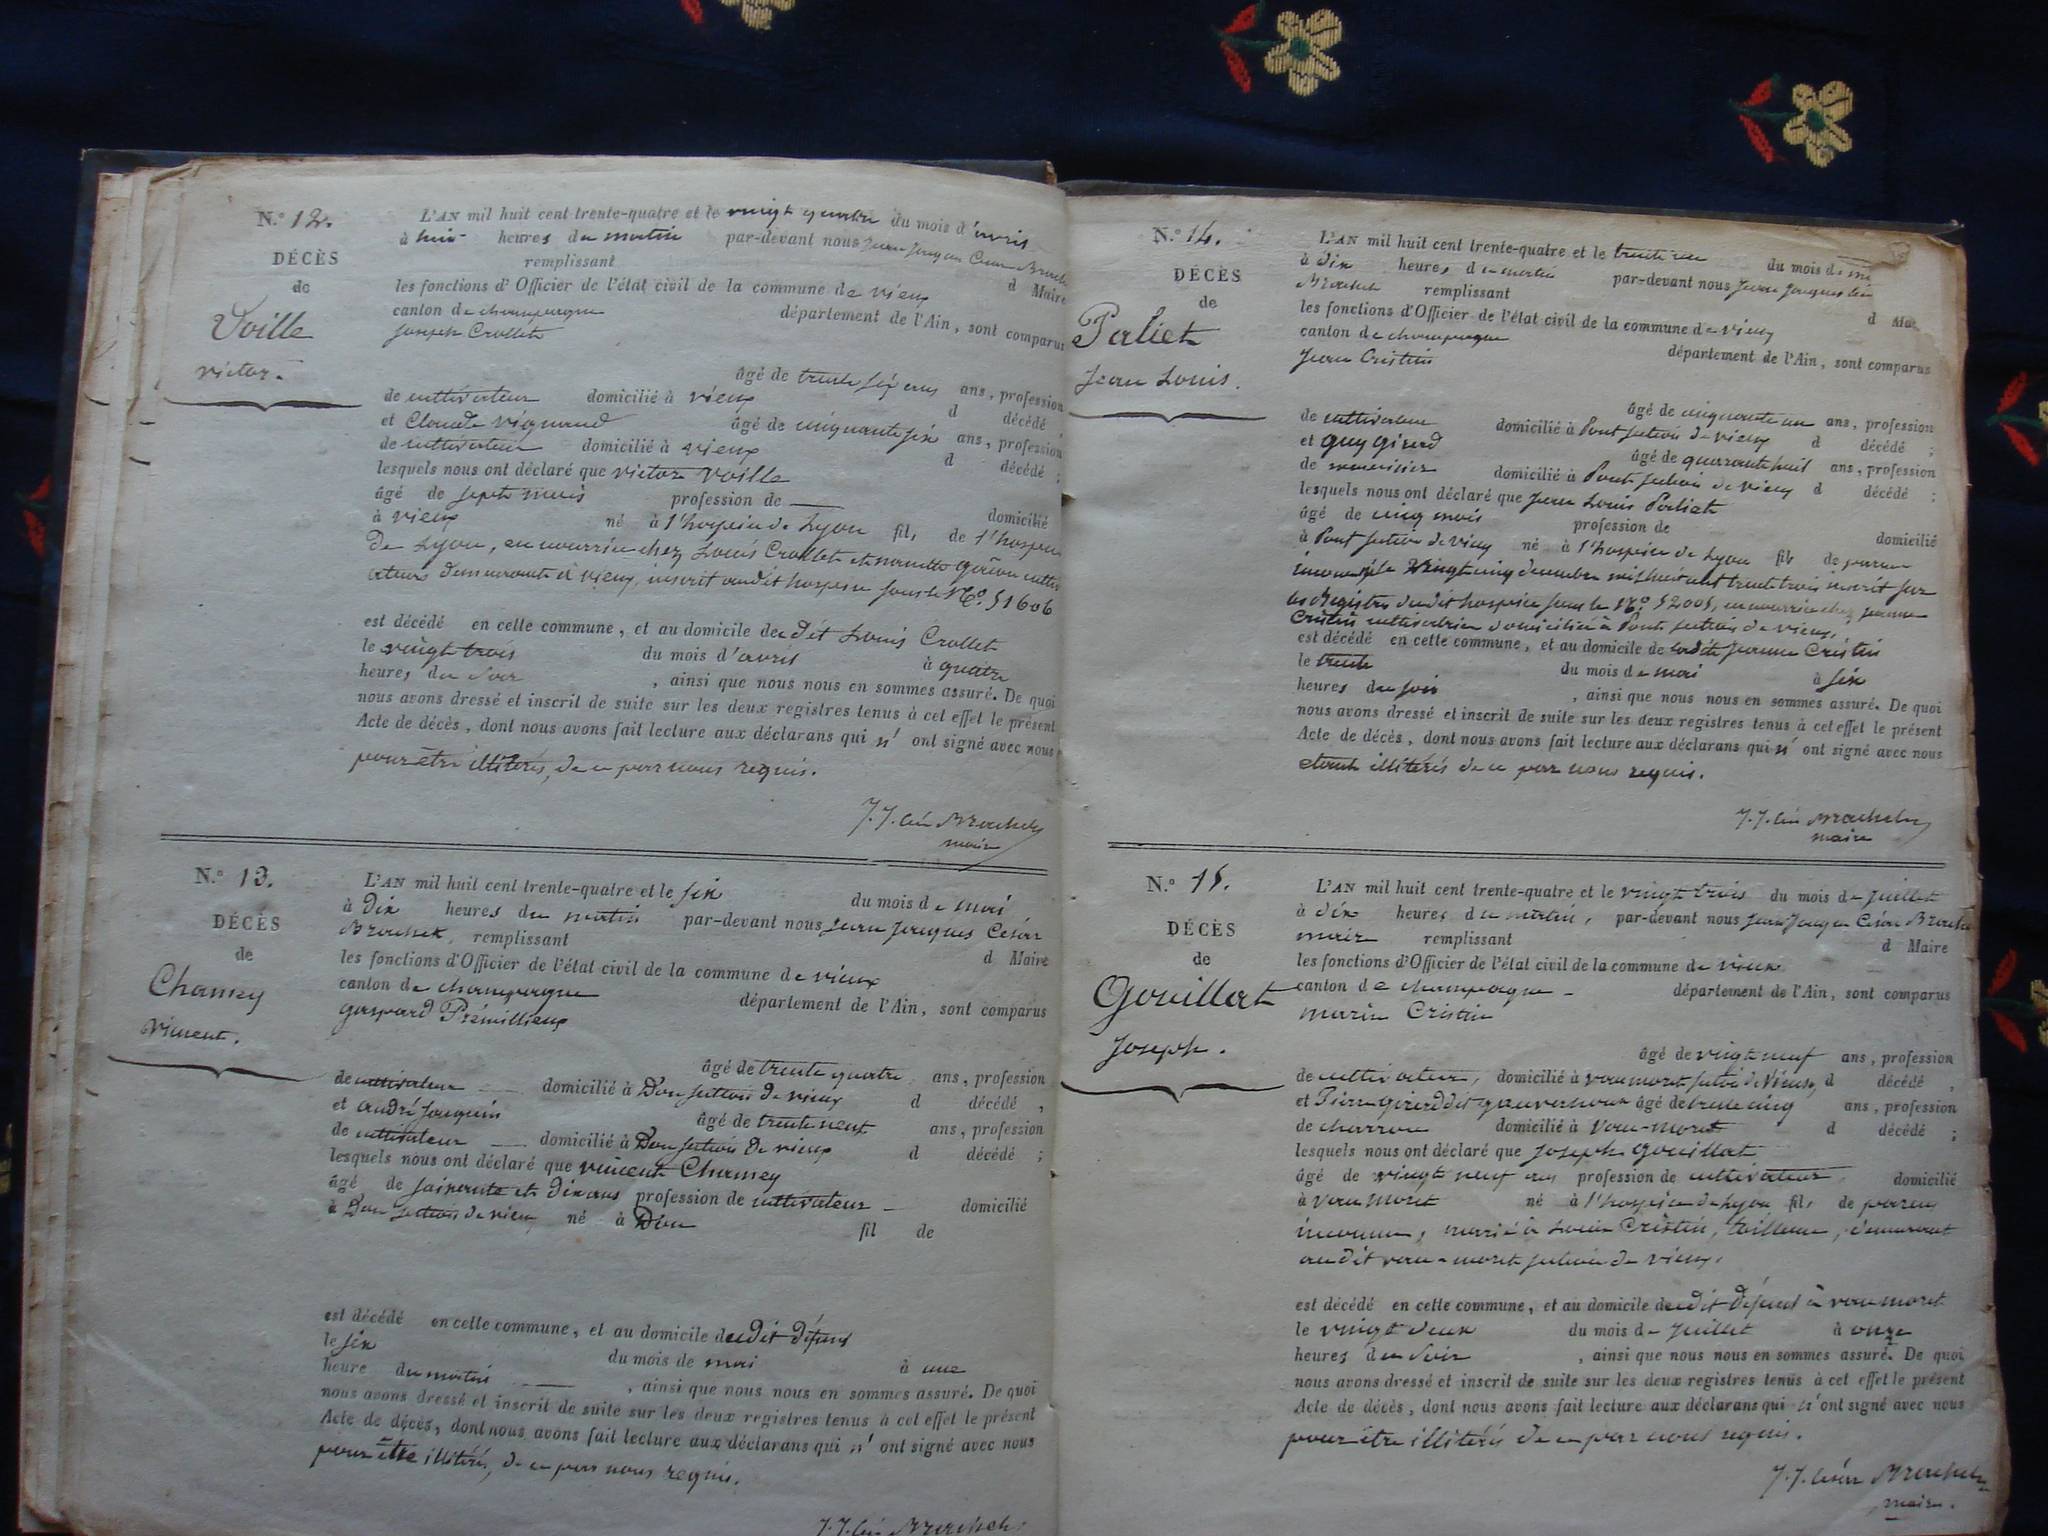 N.° 12.
DÉCÈS
de
Voille
victor.
L'AN mil huit cent trente-quatre et le vingt quatre du mois d'avril
à huit heures du matin par-devant nous Jean Jacques César Brochet
remplissant d Maire
les fonctions d'Officier de l'état civil de la commune de vieux
canton de champagne département de l'Ain, sont comparus
Joseph Crollet
âgé de trente six ans ans, profession
de cultivateur domicilié à vieux d décédé,
et Claude vignand âgé de cinquante six ans, profession
de cultivateur domicilié à vieux d décédé ;
lesquels nous ont déclaré que victor voille
âgé de sept mois profession de — domicilié
à vieux né à l'hospice de Lyon fils de l'hospice
De Lyon, en nourrice chez Louis Crollet et
demeurant à vieux, inscrit audit hospice sous le N.° 51606
est décédé en cette commune, et au domicile du dit Louis Crollet
le vingt trois du mois d'avril à quatre
heures du soir, ainsi que nous nous en sommes assuré. De quoi
nous avons dressé et inscrit de suite sur les deux registres tenus à cet effet le présent
Acte de décès, dont nous avons fait lecture aux déclarans qui n' ont signé avec nous
pour être illitérés, de ce par nous requis.
J. J. César Brochet
maire
N.° 13.
DÉCÈS
de
Chamey
vincent.
L'AN mil huit cent trente-quatre et le six du mois de mai
à dix heures du matin par-devant nous Jean Jacques César
Brochet, remplissant d Maire
les fonctions d'Officier de l'état civil de la commune de vieux
canton de champagne département de l'Ain, sont comparus
gaspard Prémillieux
âgé de trente quatre ans, profession
de cultivateur domicilié à Don section de vieux d décédé,
et andré Jouquin âgé de trente neuf ans, profession
de cultivateur domicilié à Don section De vieux d décédé ;
lesquels nous ont déclaré que vincent Chamey
âgé de soixante et dix ans profession de cultivateur domicilié
à Don section de vieux né à Don
fil de
est décédé en cette commune, et au domicile dudit défunt
le six du mois de mai à une
heure du matin, ainsi que nous nous en sommes assuré. De quoi
nous avons dressé et inscrit de suite sur les deux registres tenus à cet effet le présent
Acte de décès, dont nous avons fait lecture aux déclarans qui n' ont signé avec nous
pour être illitéré, de ce par nous requis.
J. J. César Brochet
N.° 14.
DÉCÈS
de
Paliet
Jean Louis.
L'AN mil huit cent trente-quatre et le trente un du mois de mai
à dix heures du matin par-devant nous Jean Jacques César
Brochet remplissant d Maire
les fonctions d'Officier de l'état civil de la commune de vieux
canton de champagne département de l'Ain, sont comparus
Jean Cristin
âgé de cinquante un ans, profession
de cultivateur domicilié à Pont section de vieux d décédé ;
et guy girard âgé de quarante huit ans, profession
de menuisier domicilié à Pont section de vieux d décédé ;
lesquels nous ont déclaré que Jean Louis Paliet
âgé de cinq mois profession de domicilié
à Pont section de vieux né à l'hospice de Lyon fils de parens
inconnus le vingt cinq decembre mil huit cent trente trois inscrit sur
les Registres du dit hospice sous le N.° 52005, en nourrice chez jeanne
Cristin cultivatrice domiciliée à Pont section de vieux,
est décédé en cette commune, et au domicile de ladite Jeanne Cristin
le trente du mois de mai à six
heures du soir, ainsi que nous nous en sommes assuré. De quoi
nous avons dressé et inscrit de suite sur les deux registres tenus à cet effet le présent
Acte de décès, dont nous avons fait lecture aux déclarans qui n' ont signé avec nous
étant illitérés de ce par nous requis.
J. J. César Brochet
maire
N.° 15.
DÉCÈS
de
Gouillat
Joseph.
L'AN mil huit cent trente-quatre et le vingt trois du mois de Juillet
à dix heures du matin, par-devant nous Jean Jacques César Brochet
maire remplissant d Maire
les fonctions d'Officier de l'état civil de la commune de vieux
canton de champagne département de l'Ain, sont comparus
marin Cristin
âgé de vingt neuf ans, profession
de cultivateur, domicilié à vaumoret section de Vieux, d décédé,
et Pierre girard dit gouverneur âgé de trente cinq ans, profession
de charron domicilié à vau-moret d décédé ;
lesquels nous ont déclaré que Joseph gouillat
âgé de vingt neuf ans profession de cultivateur, domicilié
à vau moret né à l'hospice de Lyon fils de parens
inconnus, marié à Cristin, tailleuse, demeurant
audit vau-moret section de vieux.
est décédé en cette commune, et au domicile dudit Défunt à vau moret
le vingt deux du mois de Juillet à onze
heures du soir, ainsi que nous nous en sommes assuré. De quoi
nous avons dressé et inscrit de suite sur les deux registres tenus à cet effet le présent
Acte de décès, dont nous avons fait lecture aux déclarans qui n'ont signé avec nous
pour être illitérés de ce par nous requis.
J. J. César Brochet
maire.